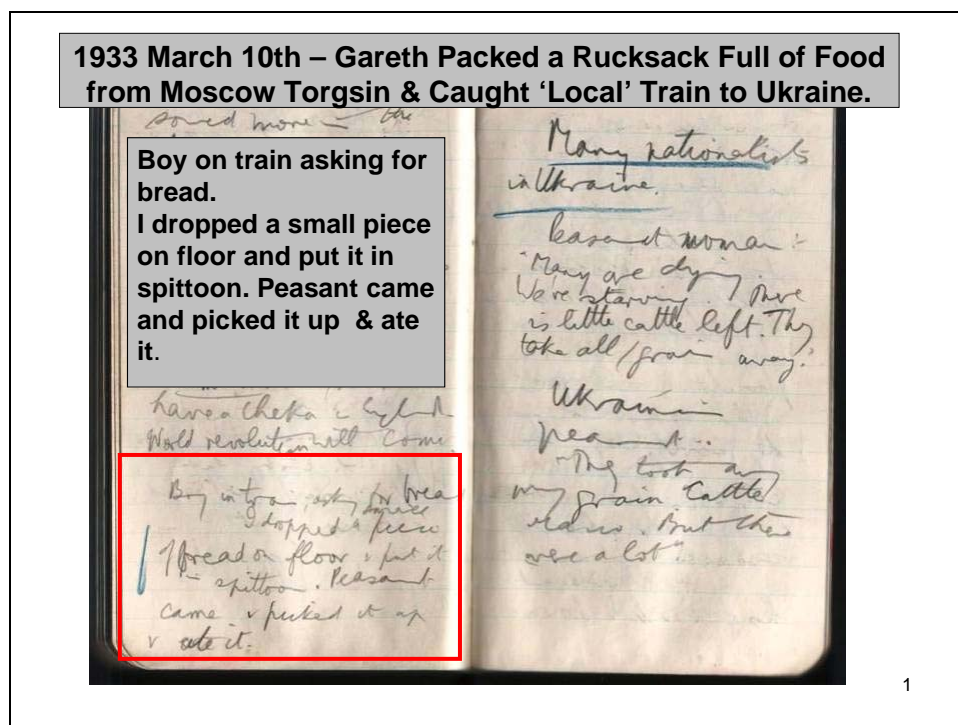 1933 March 10th – Gareth Packed a Rucksack Full of Food
from Moscow Torgsin & Caught ‘Local’ Train to Ukraine.
more in the
Boy on train asking for
bread.
I dropped a small piece
on floor and put it in
spittoon. Peasant came
and picked it up & ate
it.
have a Cheka in England
World revolution will come
Boy in train, asking for brea
I dropped a small piece
of bread on floor & put it
in spittoon. Peasant
came & picked it up
& ate it.
Many nationalists
in Ukraine.
Peasant woman :-
"Many are dying.
We're starving. There
is little cattle left. They
take all / grain away."
Ukrainian
peasant..
"They took away
my grain. Cattle
But there
were a lot"
1